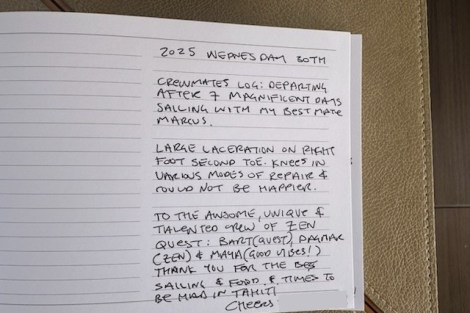 2025 WEDNESDAY 30TH
CREWMATES LOG: DEPARTING
AFTER 7 MAGNIFICENT DAYS
SAILING WITH MY BEST MATE
MARCUS.
LARGE LACERATION ON RIGHT
FOOT SECOND TOE. KNEES IN
VARIOUS MODES OF REPAIR &
COULD NOT BE HAPPIER.
TO THE AWSOME, UNIQUE &
TALENTED CREW OF ZEN
QUEST: BART(QUEST), DAGMAR
(ZEN) & MAYA(GOOD VIBES!)
THANK YOU FOR THE BEST
SAILING & FOOD & TIMES TO
BE HAD IN TAHITI
CHEERS